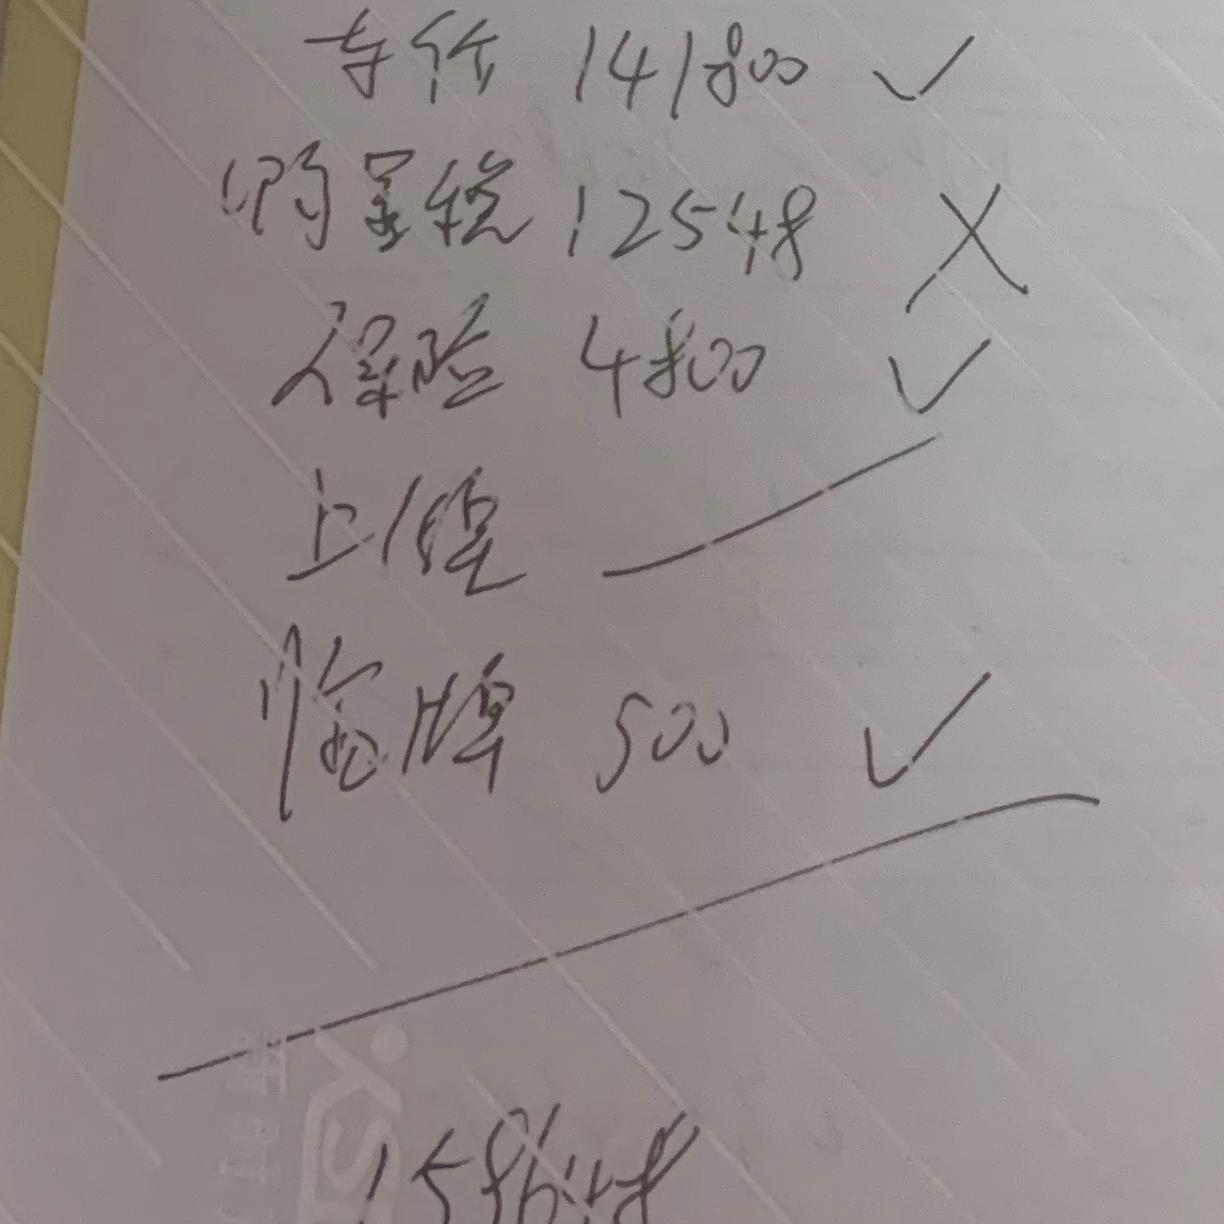 车价 141800 ✓
购置税 12548 ✗
保险 4800 ✓
上牌
临牌 500 ✓
158648